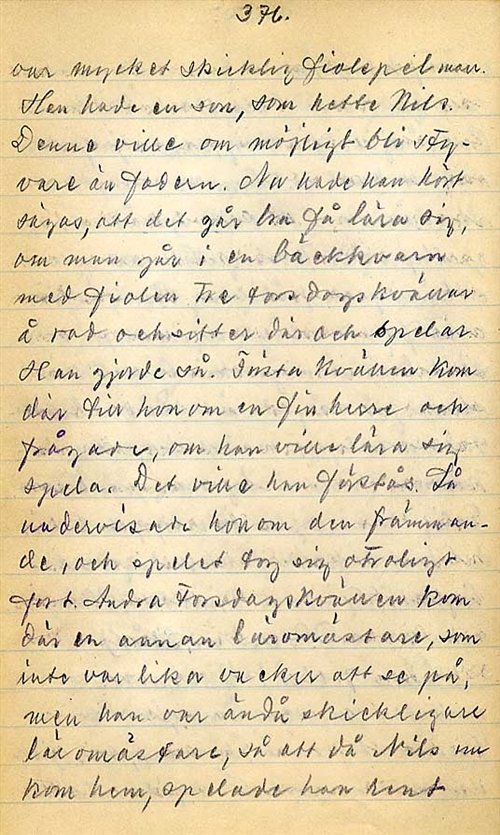 376.
var mycket skicklig fiolspelman.
Han hade en son, som hette Nils.
Denne ville om möjligt bli styv-
vare än fadern. Nu hade han hört
sägas, att det går bra få lära sig,
om man går i en bäckkvarn
med fiolen tre torsdagskvällar
å rad och sitter där och spelar.
Han gjorde så. Första kvällen kom
där till honom en fin herre och
frågade, om han ville lära sig
spela. Det ville han förstås. Då
undervisade honom den främman-
de, och spelet tog sig otroligt
fort. Andra torsdagskvällen kom
där en annan läromästare, som
inte var lika vacker att se på,
men han var ändå skickligare
läromästare, så att då Nils nu
kom hem, spelade han rent